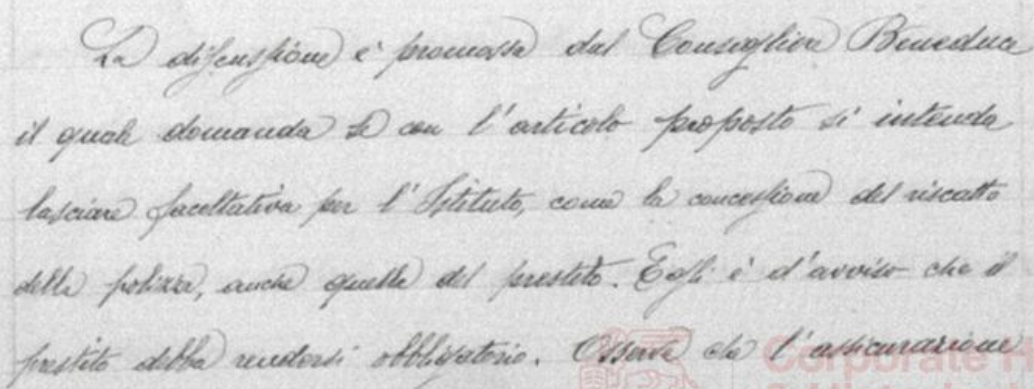 La discussione è promossa dal Consigliere Beneduce
il quale domanda se con l'articolo proposto si intenda
lasciare facoltativa per l'Istituto, come la concessione del riscatto
della polizza, anche quella del prestito. Egli è d'avviso che il
prestito debba rendersi obbligatorio. Osserva che l'assicurazione
Corporate H